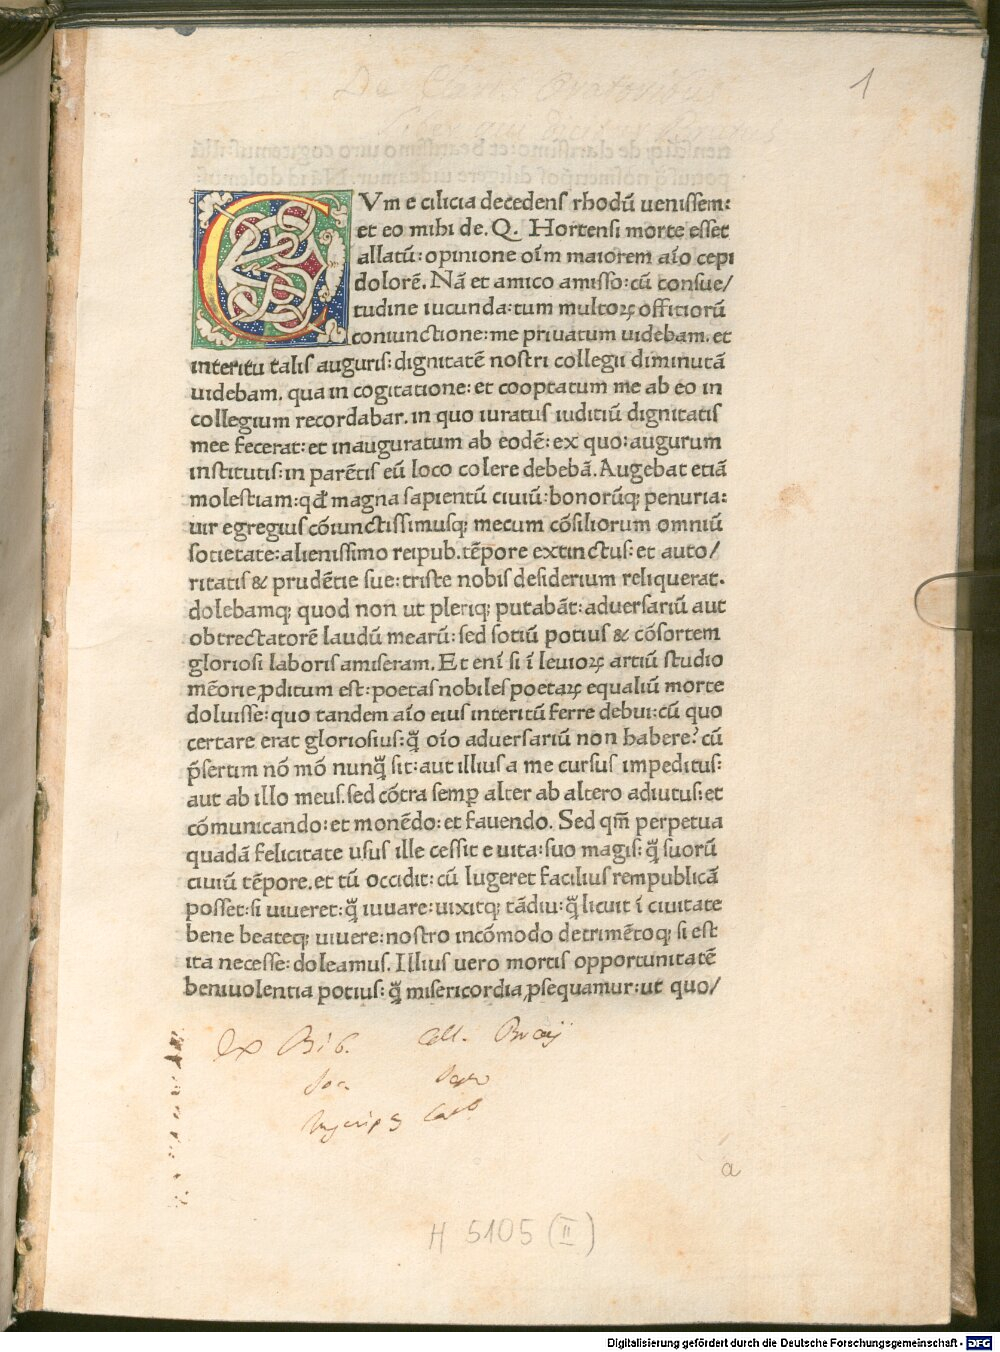 De Claris Oratoribus
Liber qui dicitur
1
CVm e cilicia decedens rhodū uenissem:
et eo mihi de. Q. Hortensi morte esset
allatū: opinione oīm maiorem aīo cepi
dolorē. Nā et amico amisso: cū consue/
tudine iucunda: tum multoꝝ offitiorū
coniunctione: me priuatum uidebam. et
interitu talis auguris: dignitatē nostri collegii diminutā
uidebam. qua in cogitatione: et cooptatum me ab eo in
collegium recordabar. in quo iuratus iuditiū dignitatis
mee fecerat: et inauguratum ab eodē: ex quo: augurum
institutis: in parētis eū loco colere debebā. Augebat etiā
molestiam: qđ magna sapientū ciuiū: bonorūqꝫ penuria:
uir egregius cōiunctissimusqꝫ mecum cōsiliorum omniū
sotietate: alienissimo reipub. tēpore extinctus: et auto/
ritatis & prudētie sue: triste nobis desiderium reliquerat.
dolebamqꝫ quod non ut pleriqꝫ putabāt: aduersariū aut
obtrectatorē laudū mearū: sed sotiū potius & cōsortem
gloriosi laboris amiseram. Et enī si ī leuioꝝ artiū studio
mēorie ꝓditum est: poetas nobiles poetaꝝ equaliū morte
doluisse: quo tandem aīo eius interitū ferre debui: cū quo
certare erat gloriosius: q̄ oīo aduersariū non habere? cū
p̄sertim nō mō nunq̄ sit: aut illius a me cursus impeditus:
aut ab illo meus. sed cōtra semꝑ alter ab altero adiutus: et
cōmunicando: et monēdo: et fauendo. Sed qm̄ perpetua
quadā felicitate usus ille cessit e uita: suo magis: q̄ suorū
ciuiū tēpore. et tū occidit: cū lugeret facilius rempublicā
posset: si uiueret: q̄ iuuare: uixitqꝫ tādiu: q̄ licuit ī ciuitate
bene beateqꝫ uiuere: nostro incōmodo detrimētoqꝫ si est
ita necesse: doleamus. Illius uero mortis opportunitatē
beniuolentia potius: q̄ misericordia ꝓsequamur: ut quo/
Ex Bib. Coll.
a
H 5105 (II)
Digitalisierung gefördert durch die Deutsche Forschungsgemeinschaft - DFG